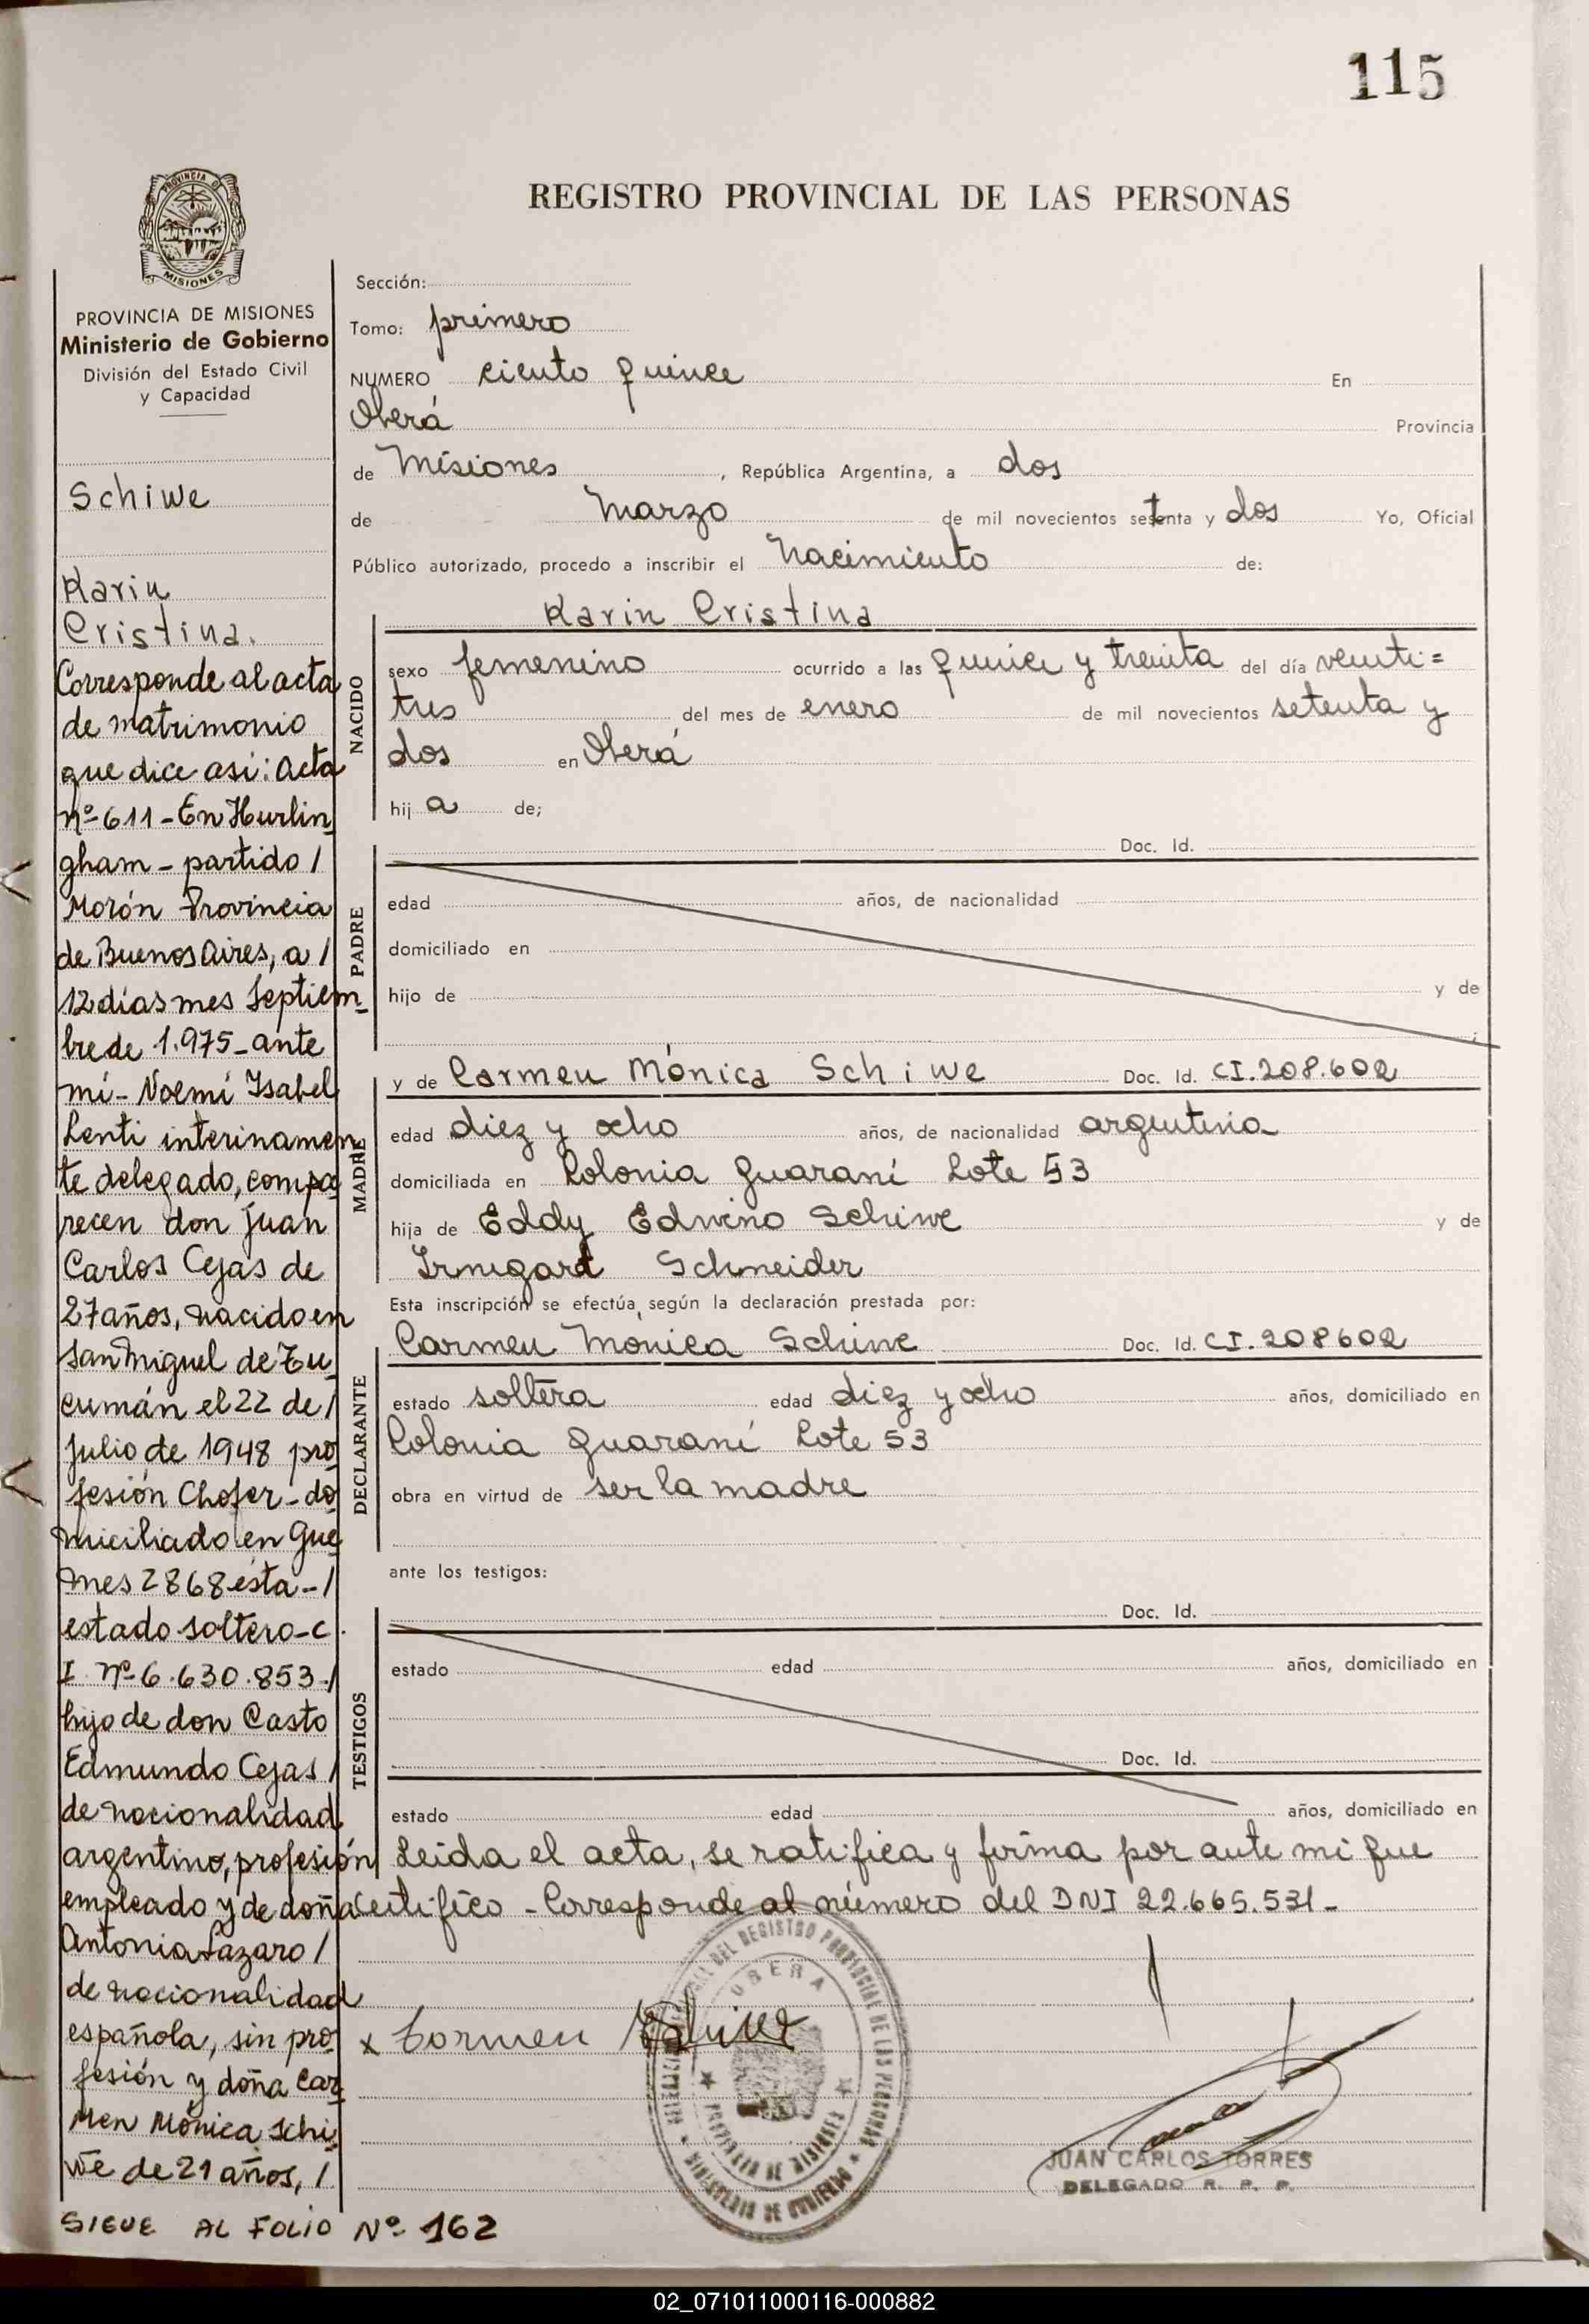 115
REGISTRO PROVINCIAL DE LAS PERSONAS
PROVINCIA DE
MISIONES
PROVINCIA DE MISIONES
Ministerio de Gobierno
División del Estado Civil
y Capacidad
Schiwe
Karin
Cristina.
Corresponde al acta
de matrimonio
que dice asi: Acta
nº 611 - En Hurlin
gham - partido /
Morón Provincia
de Buenos Aires, a /
12 días mes Septiem
bre de 1.975 - ante
mí - Noemí Isabel
Lenti interinamen
te delegado, compa
recen don Juan
Carlos Cejas de
27 años, nacido en
San Miguel de Tu
cumán el 22 de /
Julio de 1948 pro
fesión Chofer - do
miciliado en Gue
mes 2868 ésta - /
estado soltero - C.
I. Nº 6.630.853 - /
hijo de don Casto
Edmundo Cejas /
de nacionalidad
argentino, profesión
empleado y de doña
Antonia Lazaro /
de nacionalidad
española, sin pro
fesión y doña Car
men Mónica Schi
we de 21 años, /
SIGUE AL FOLIO Nº 162
Sección:
Tomo: primero
NUMERO ciento quince En
Oberá Provincia
de Misiones, República Argentina, a dos
de Marzo de mil novecientos setenta y dos Yo, Oficial
Público autorizado, procedo a inscribir el Nacimiento de:
Karin Cristina
NACIDO
sexo femenino ocurrido a las quince y treinta del día veinti=
tres del mes de enero de mil novecientos setenta y
dos en Oberá
hij a de;
PADRE
Doc. Id.
edad años, de nacionalidad
domiciliado en
hijo de y de
;
MADRE
y de Carmen Mónica Schiwe Doc. Id. CI.208.602
edad diez y ocho años, de nacionalidad argentina
domiciliada en Colonia Guaraní Lote 53
hija de Eddy Edwino Schiwe y de
Irmgard Schneider
Esta inscripción se efectúa según la declaración prestada por:
DECLARANTE
Carmen Mónica Schiwe Doc. Id. CI.208602
estado soltera edad diez y ocho años, domiciliado en
Colonia Guaraní Lote 53
obra en virtud de ser la madre
ante los testigos:
TESTIGOS
Doc. Id.
estado edad años, domiciliado en
Doc. Id.
estado edad años, domiciliado en
Leida el acta, se ratifica y firma por ante mi que
Certifico - Corresponde al número del DNI 22.665.531 -
x Carmen Schiwe
DEL REGISTRO PROVINCIAL DE LAS PERSONAS
OBERA
PROVINCIA DE MISIONES
MINISTERIO DE GOBIERNO
JUAN CARLOS TORRES
DELEGADO R. P. P.
02_071011000116-000882